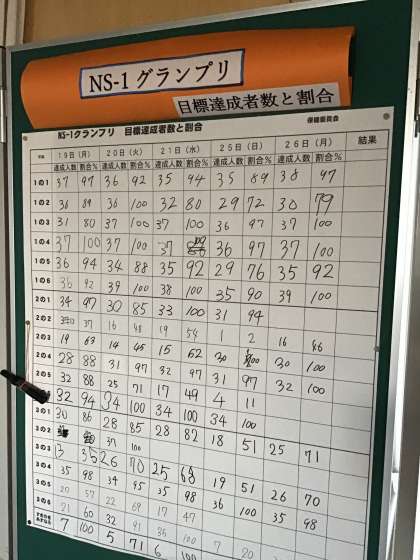 NS-1グランプリ
目標達成者数と割合
NS-1グランプリ 目標達成者数と割合
保健委員会
19日(月) 20日(火) 21日(水) 25日(日) 26日(月) 結果
達成人数 割合% 達成人数 割合% 達成人数 割合% 達成人数 割合% 達成人数 割合%
1の1 37 97 36 92 35 94 35 89 38 97
1の2 36 89 36 100 32 80 29 72 30 79
1の3 31 80 37 100 37 100 36 97 37 100
1の4 37 100 37 100 37 36 97 37 100
1の5 36 94 34 88 35 92 29 76 35 92
1の6 36 92 39 100 38 100 35 90 39 100
2の1 34 97 30 85 33 100 31 94
2の2 37 16 48 19 54 1 2 16 46
2の3 19 63 14 45 15 62 30 100 30 100
2の4 28 88 31 97 32 97 31 97 32 100
2の5 32 88 25 71 17 49 4 11
3の1 32 94 34 100 34 100 34 100
3の2 30 86 28 85 28 82 18 51 25 71
3の3 37 100
3の4 13 35 26 70 25 68 19 51 26 70
3の5 35 98 34 95 35 98 36 100 35 98
3の6 20 57 22 69 17 47
21 60 32 91 36 100 7 20
7 100 5 71 6 100